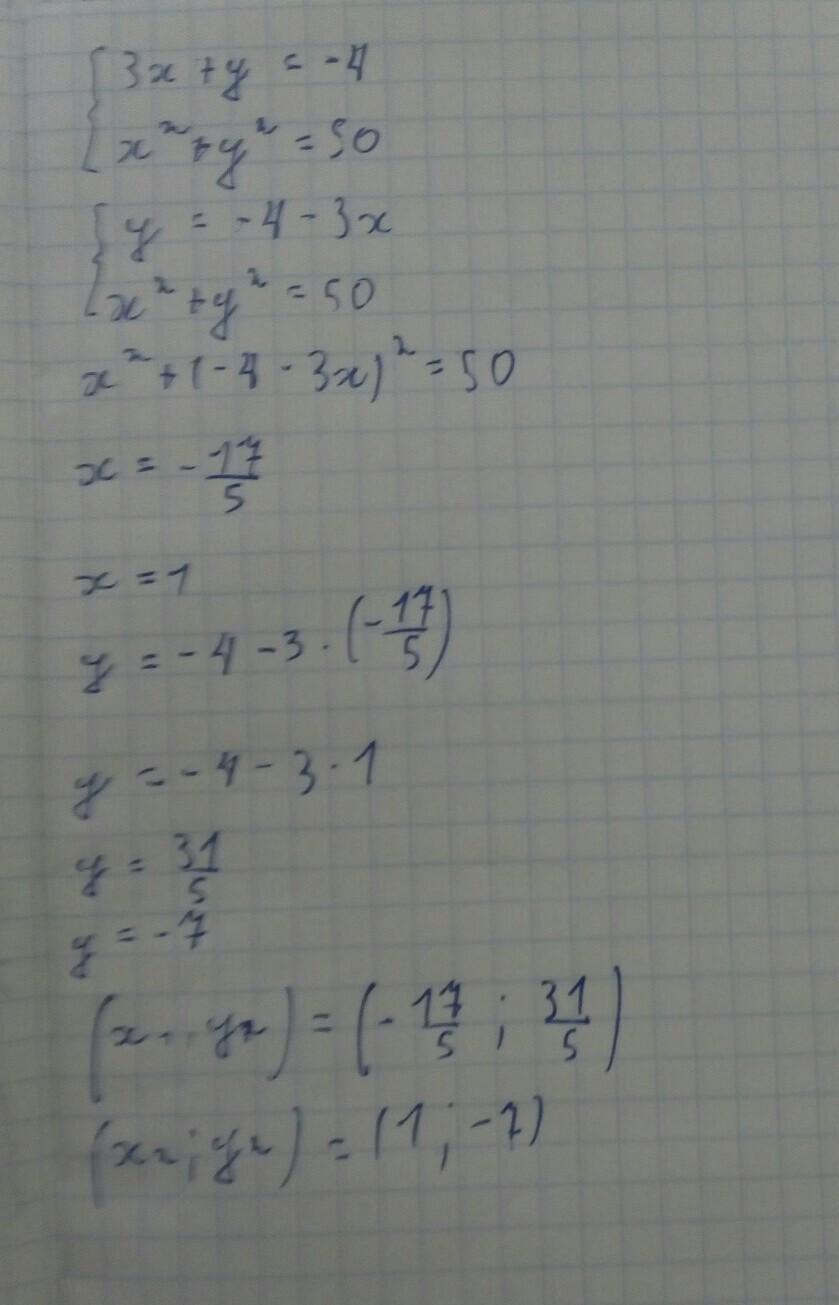 { 3x + y = -4
x² + y² = 50
{ y = -4 - 3x
x² + y² = 50
x² + (-4 - 3x)² = 50
x = -17/5
x = 1
y = -4 - 3 · (-17/5)
y = -4 - 3 · 1
y = 31/5
y = -7
(x y₂) = (-17/5 ; 31/5)
(x₂ ; y₂) = (1 ; -7)